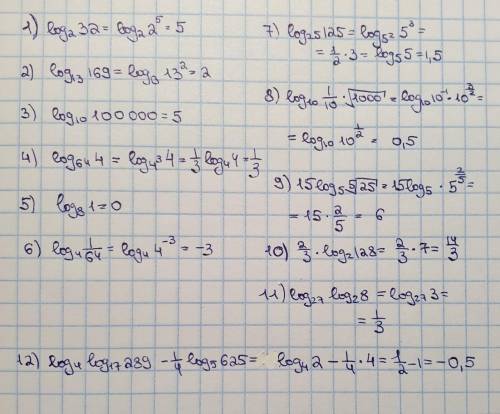 1) log₂32 = log₂2⁵ = 5
2) log₁₃169 = log₁₃13² = 2
3) log₁₀100 000 = 5
4) log₆₄4 = log₄³4 = 1/3 log₄4 = 1/3
5) log₈1 = 0
6) log₄ 1/64 = log₄4⁻³ = -3
7) log₂₅125 = log₅²5³ =
= 1/2 · 3 = log₅5 = 1,5
8) log₁₀ 1/10 · √1000 = log₁₀10⁻¹ · 10^(3/2) =
= log₁₀10^(1/2) = 0,5
9) 15log₅ ⁵√25 = 15log₅ · 5^(2/5) =
= 15 · 2/5 = 6
10) 2/3 · log₂128 = 2/3 · 7 = 14/3
11) log₂₇log₂8 = log₂₇3 =
= 1/3
12) log₄log₁₇289 - 1/4 log₅625 = log₄2 - 1/4 · 4 = 1/2 - 1 = -0,5